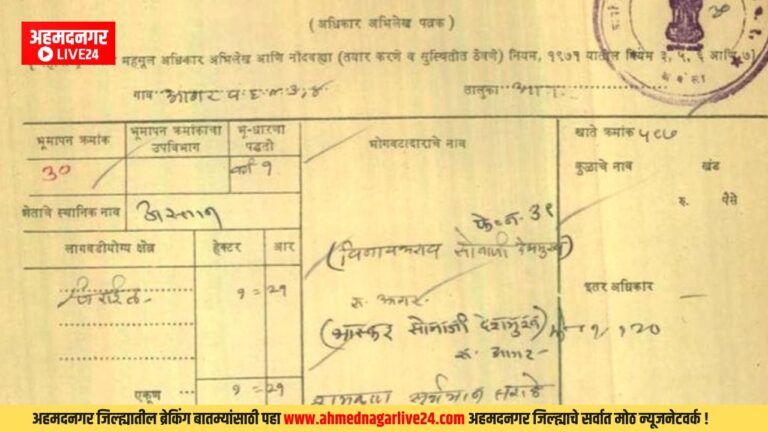 अहमदनगर
LIVE24
(अधिकार अभिलेख पत्रक)
महसूल अधिकार अभिलेख आणि नोंदवह्या (तयार करणे व सुस्थितीत ठेवणे) नियम, १९७१ यातील नियम ३, ५, ६ आणि ७]
गाव आगर
तालुका
भूमापन क्रमांक
भूमापन क्रमांकाचा उपविभाग
भू-धारणा पद्धती
भोगवटादाराचे नाव
खाते क्रमांक ५८७
३०
वर्ग १
कुळाचे नाव खंड
रु. पैसे
शेताचे स्थानिक नाव
फे. नं. ३९
लागवडीयोग्य क्षेत्र हेक्टर आर
(विनायकराव सोनाजी देशमुख)
जिराईत १ = २१
रु. आगर
इतर अधिकार
(भास्कर सोनाजी देशमुख)
रु. आगर
एकूण १ = २१
अहमदनगर जिल्ह्यातील ब्रेकिंग बातम्यांसाठी पहा www.ahmednagarlive24.com अहमदनगर जिल्ह्याचे सर्वात मोठ न्यूजनेटवर्क !